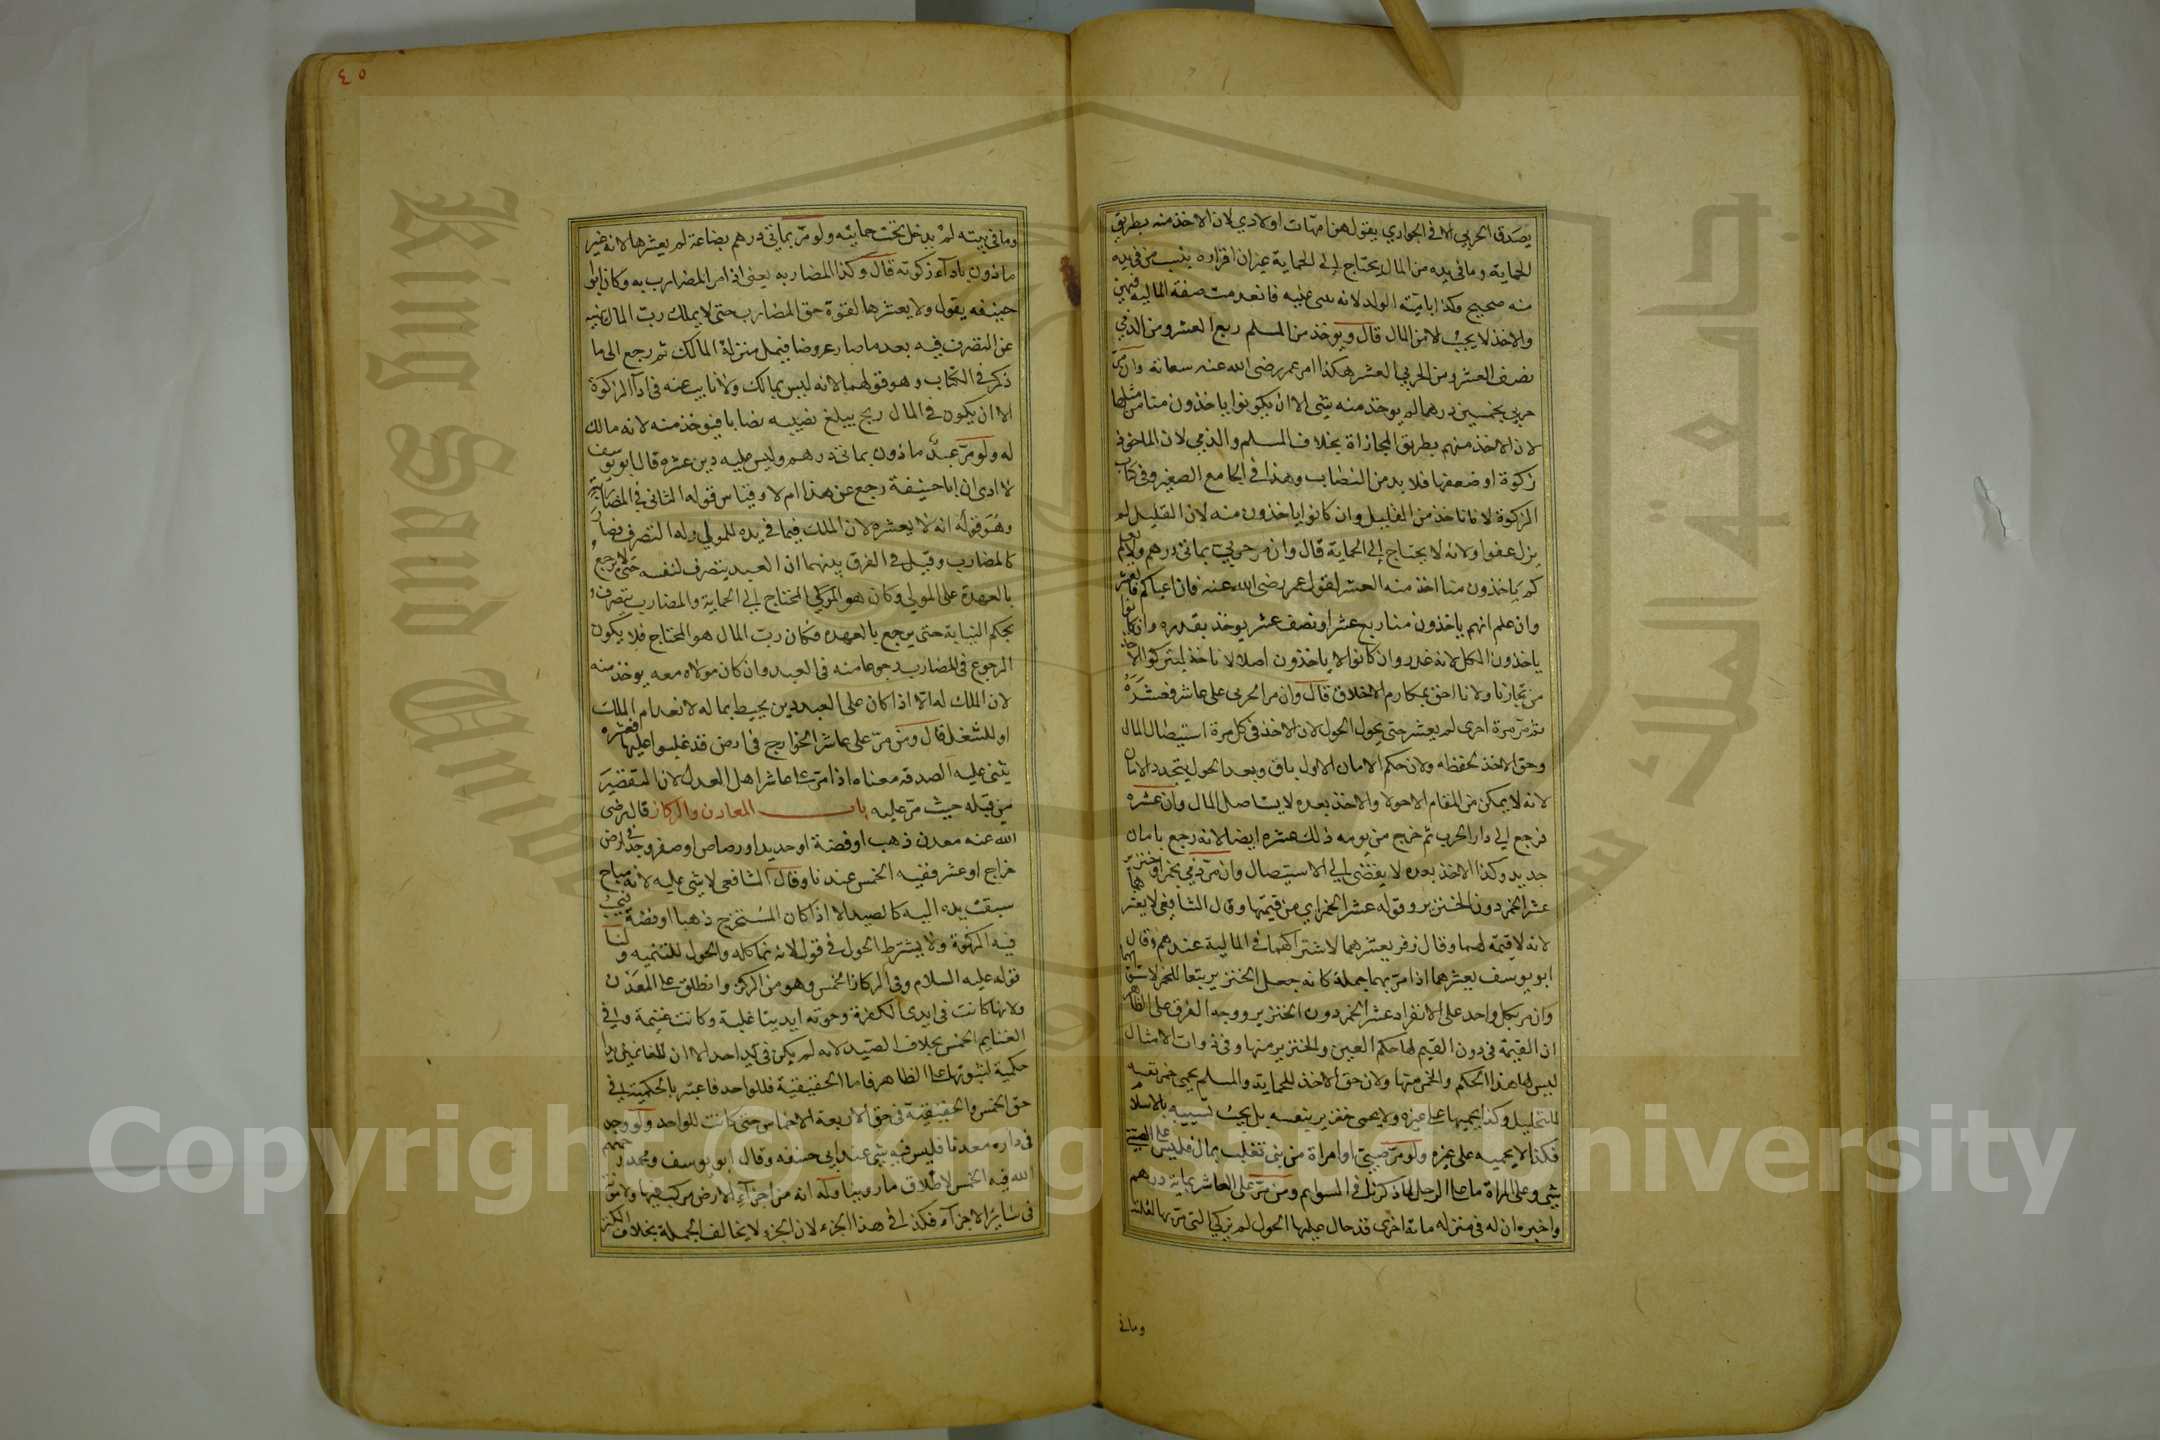 يصدق الحربي الا في الجواري يقول هن امهات اولادي لان الاخذ منه بطريق
الحماية وما في يده من المال يحتاج الى الحماية غير ان اقراره بنسب من في يده
منه صحيح وكذا بامية الولد لانه يبنى عليه فانعدمت صفة المالية فيهن
والاخذ لا يجب الا من المال قال ويوخذ من المسلم ربع العشر ومن الذمي
نصف العشر ومن الحربي العشر هكذا امر عمر رضى الله عنه سعاته وان مر
حربي بخمسين درهما لم يوخذ منه شى الا ان يكونوا ياخذون منا من مثلها
لان الاخذ منهم بطريق المجازاة بخلاف المسلم والذمي لان الماخوذ
زكوة او ضعفها فلا بد من النصاب وهذا في الجامع الصغير وفي كتاب
الزكوة لا ناخذ من القليل وان كانوا ياخذون منه لان القليل لم
يزل عفوا ولانه لا يحتاج إلى الحماية قال وان مر حربي بمائتى درهم ولا يعلم
كم ياخذون منا اخذ منه العشر لقول عمر رضى الله عنه فان اعياكم فالعشر
وان علم انهم ياخذون منا ربع عشر او نصف عشر يوخذ بقدره وان كانوا
ياخذون الكل لانه غدر وان كانوا لا ياخذون اصلا لا ناخذ ليتركوا الاخذ
من تجارنا ولانا احق بمكارم الاخلاق قال وان مر الحربى على عاشر فعشره
ثم مر مرة اخرى لم يعشر حتى يحول الحول لان الاخذ في كل مرة استيصال المال
وحق الاخذ لحفظه ولان حكم الامان الاول باق وبعد الحول يتجدد الامان
لانه لا يمكن من المقام الا حولا والاخذ بعده لا يستاصل المال وان عشره
فرجع الى دار الحرب ثم خرج من يومه ذلك عشره ايضا لانه رجع بامان
جديد وكذا الاخذ بعده لا يفضى إلى الاستيصال وان مر ذمي بخمر او خنزير
عشر الخمر دون الخنزير وقوله عشر الخمر اي من قيمتها وقال الشافعى لا يعشرهما
لانه لا قيمة لهما وقال زفر يعشرهما لاشتراكهما في المالية عندهم وقال
ابو يوسف يعشرهما اذا مر بهما جملة كانه جعل الخنزير تبعا للخمر
وان مر بكل واحد على الانفراد عشر الخمر دون الخنزير ووجه الفرق على الظاهر
ان القيمة في ذوات القيم لها حكم العين والخنزير منها وفي ذوات الامثال
ليس لها هذا الحكم والخمر منها ولان حق الاخذ للحماية والمسلم يحمي خمر نفسه
للتخليل وكذا يحميها على غيره ولا يحمى خنزير نفسه بل يجب تسييبه بالاسلام
فكذا لا يحميه على غيره ولو مر صبي او امراة من بنى تغلب بمال فليس على الصبى
شى وعلى المراة ما على الرجل لما ذكرنا في السوايم ومن مر على العاشر بماية درهم
واخبره ان له في منزله مائة اخرى قد حال عليها الحول لم يزكي التى مر بها لقلتها
وما في
٤٥
وما في بيته لم يدخل تحت حمايته ولو مر بمايتى درهم بضاعة لم يعشرها لانه غير
ماذون باداء زكوته قال وكذا المضاربه يعنى اذا مر المضارب به وكان ابو
حنيفه يقول ولا يعشرها لقوة حق المضارب حتى لا يملك رب المال نهيه
عن التصرف فيه بعد ما صار عروضا فينزل منزلة المالك ثم رجع الى ما
ذكر في الكتاب وهو قولهما لانه ليس بمالك ولا نايب عنه في اداء الزكوة
الا ان يكون في المال ربح يبلغ نصيبه نصابا فيوخذ منه لانه مالك
له ولو مر عبد ماذون بمائتى درهم وليس عليه دين عشره قال ابو يوسف
لا ادرى ان ابا حنيفة رجع عن هذا ام لا وقياس قوله الثانى في المضاربة
وهو قولهما انه لا يعشره لان الملك فيما في يده للمولى وله التصرف فصار
كالمضارب وقيل في الفرق بينهما ان العبد يتصرف لنفسه حتى لا يرجع
بالعهدة على المولى وكان هو المحتاج إلى الحماية والمضارب يتصرف
بحكم النيابة حتى يرجع بالعهده فكان رب المال هو المحتاج فلا يكون
الرجوع في المضارب رجوعا منه فى العبد وان كان مولاه معه يوخذ منه
لان الملك له الا اذا كان على العبد دين يحيط بماله لانعدام الملك
او للشغل قال ومن مر على عاشر الخوارج في ارض قد غلبوا عليها فعشره
يثنى عليه الصدقه معناه اذا مر على عاشر اهل العدل لان التقصير
من قبله حيث مر عليه باب المعادن والركاز قال رضى
الله عنه معدن ذهب او فضة او حديد او رصاص او صفر وجد في ارض
خراج او عشر ففيه الخمس عندنا وقال الشافعى لا شى عليه لانه مباح
سبقت يده اليه كالصيد الا اذا كان المستخرج ذهبا او فضة فيجب
فيه الزكوة ولا يشترط الحول في قول لانه نما كله والحول للتنميه ولنا
قوله عليه السلام وفي الركاز الخمس وهو من الركز وانطلق على المعدن
ولانها كانت في ايدي الكفرة وحوته ايدينا غلبة وكانت غنيمة وفي
الغنايم الخمس بخلاف الصيد لانه لم يكن في يد احد الا ان للغانمين يدا
حكمية لثبوتها على الظاهر فاما الحقيقية فللواحد فاعتبر بالحكمية في
حق الخمس والحقيقية في حق الاربعة الاخماس حتى كانت للواحد ولو وجد
في داره معدنا فليس فيه شى عند ابى حنيفه وقال ابو يوسف ومحمد رحمهم
الله فيه الخمس لاطلاق ما روينا وله انه من اجزاء الارض مركب فيها ولا مؤنة
في ساير الاجزاء فكذا في هذا الجزء لان الجزء لا يخالف الجملة بخلاف الكنز
King Saud University
جامعة الملك سعود
Copyright © King Saud University